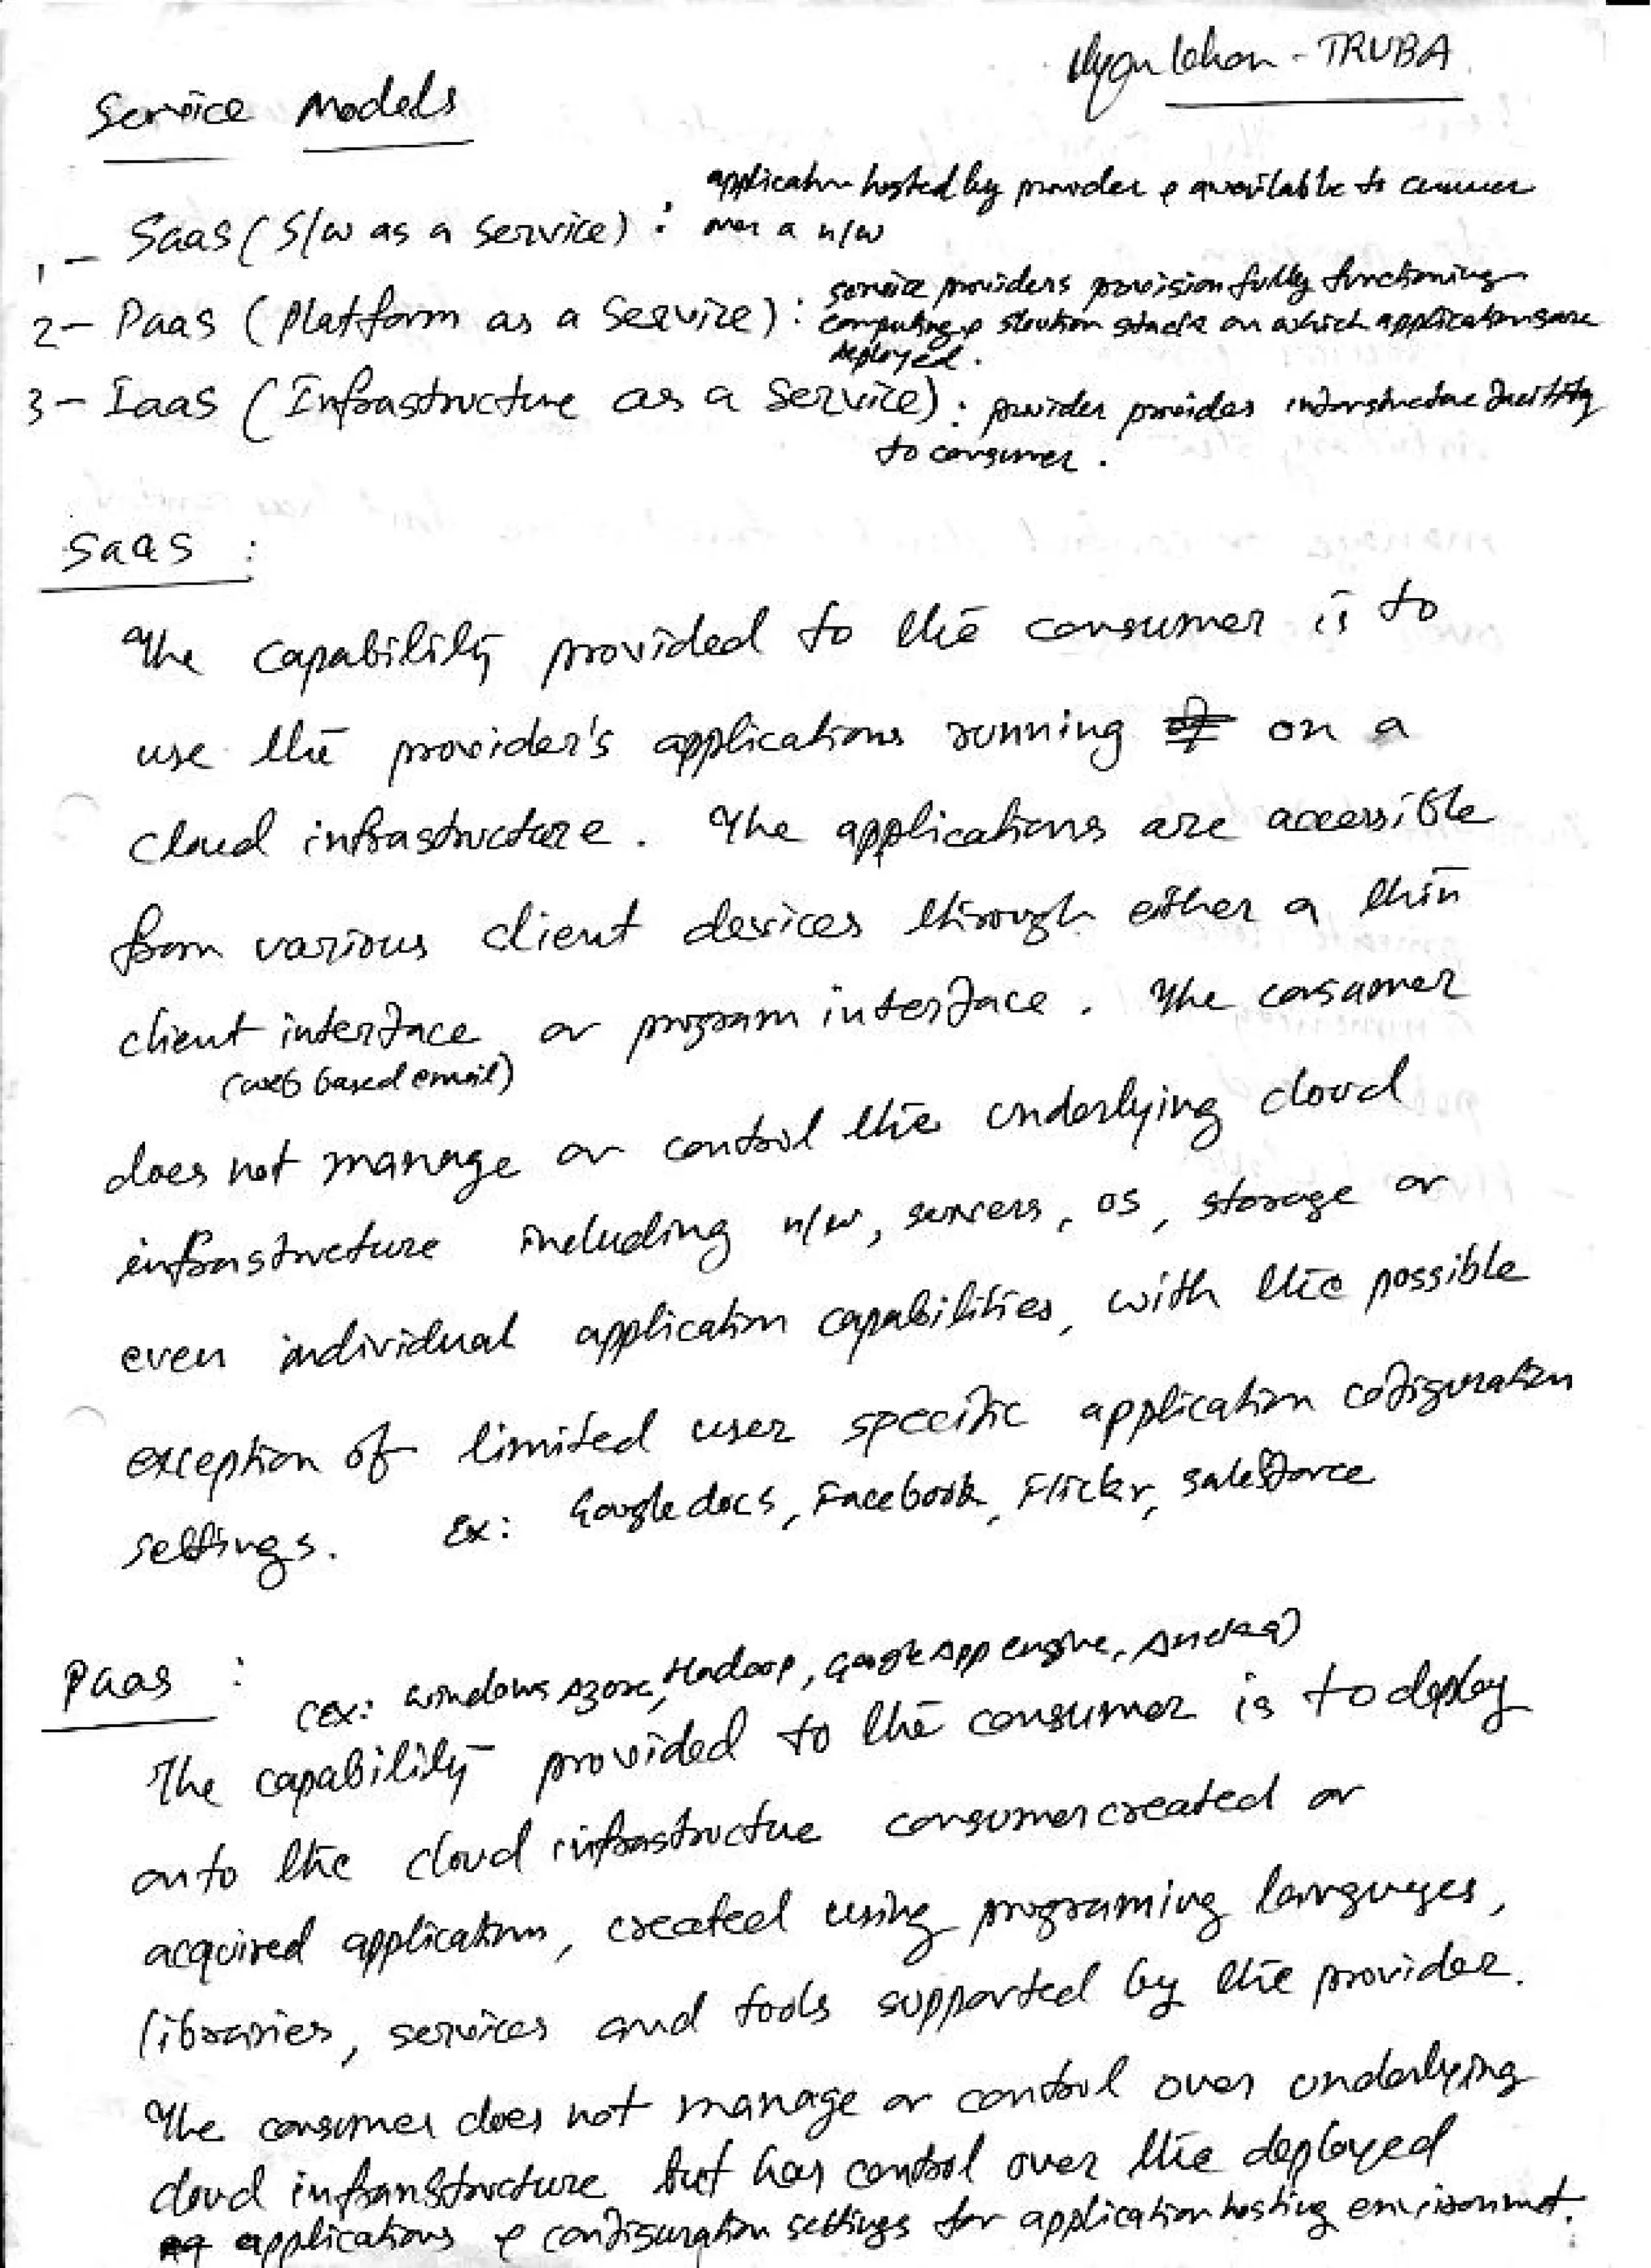 - TRUBA
Service Models
1 - SaaS ( S/w as a Service ) : application hosted by provider & available to
over a n/w
2 - Paas ( Platform as a Service ) : service providers provision fully functioning
computing & stack on which applications are
deployed.
3 - Iaas ( Infrastructure as a Service ) : provider provides
to consumer .
SaaS :
The capability provided to the consumer is to
use the provider's applications running on a
cloud infrastructure . The applications are accessible
from various client devices through either a thin
client interface or program interface . The consumer
(web based email)
does not manage or control the underlying cloud
infrastructure including n/w, servers, OS, storage or
even individual application capabilities, with the possible
exception of limited user specific application cofiguration
settings. Ex: Google docs, Facebook, Flicker, Salesforce
Paas : (ex: Windows Azore, Hadoop, Google App engine, Aneka)
The capability provided to the consumer is to deploy
onto the cloud infrastructue consumer created or
acquired application, created using programing languages,
libraries, services and tools supported by the provider.
The consumer does not manage or control over underlying
cloud infranstructure but has control over the deployed
applications & configuration settings for application hosting